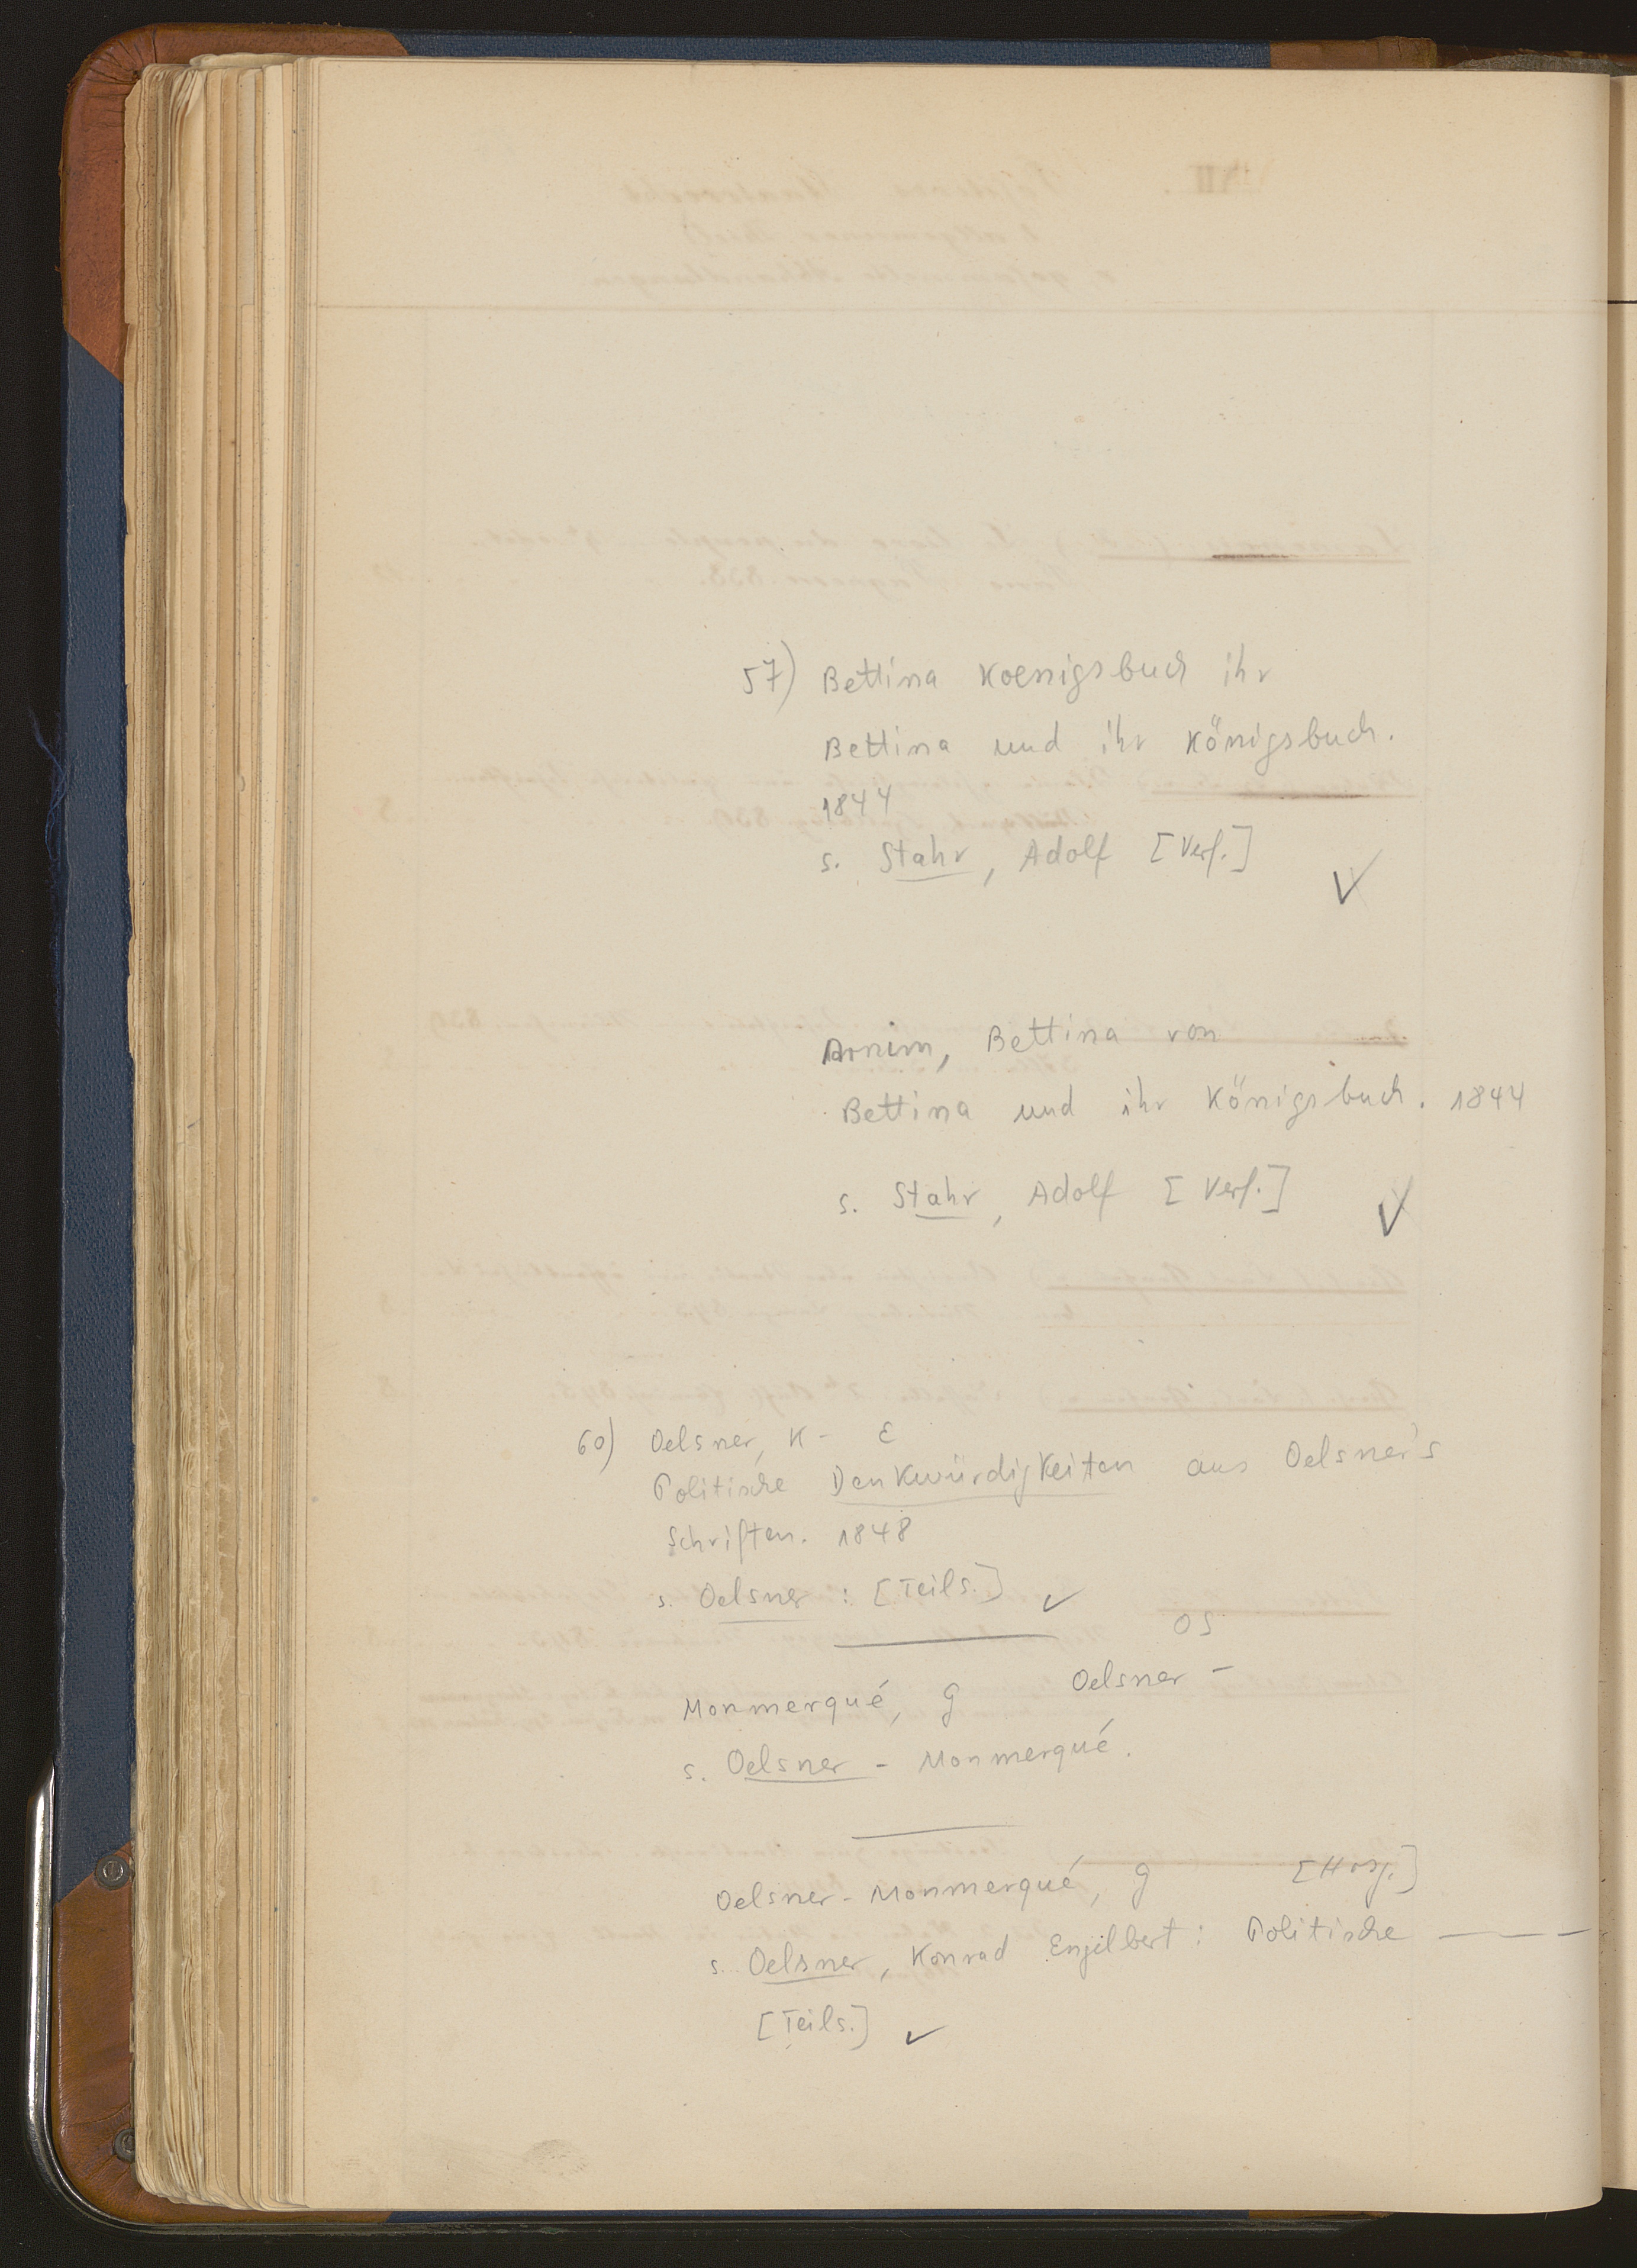 57) Bettina Koenigsbuch ihr
Bettina und ihr Königsbuch.
1844
s. Stahr, Adolf [Verf.] ✓
Arnim, Bettina von
Bettina und ihr Königsbuch. 1844
s. Stahr, Adolf [Verf.] ✓
60) Oelsner, K - E
Politische Denkwürdigkeiten aus Oelsner's
Schriften. 1848
s. Oelsner : [Teils.] ✓
OS
Monmerqué, G Oelsner -
s. Oelsner - Monmerqué.
Oelsner - Monmerqué, G [Hrsg.]
s. Oelsner, Konrad Engelbert : Politische — — —
[Teils.] ✓